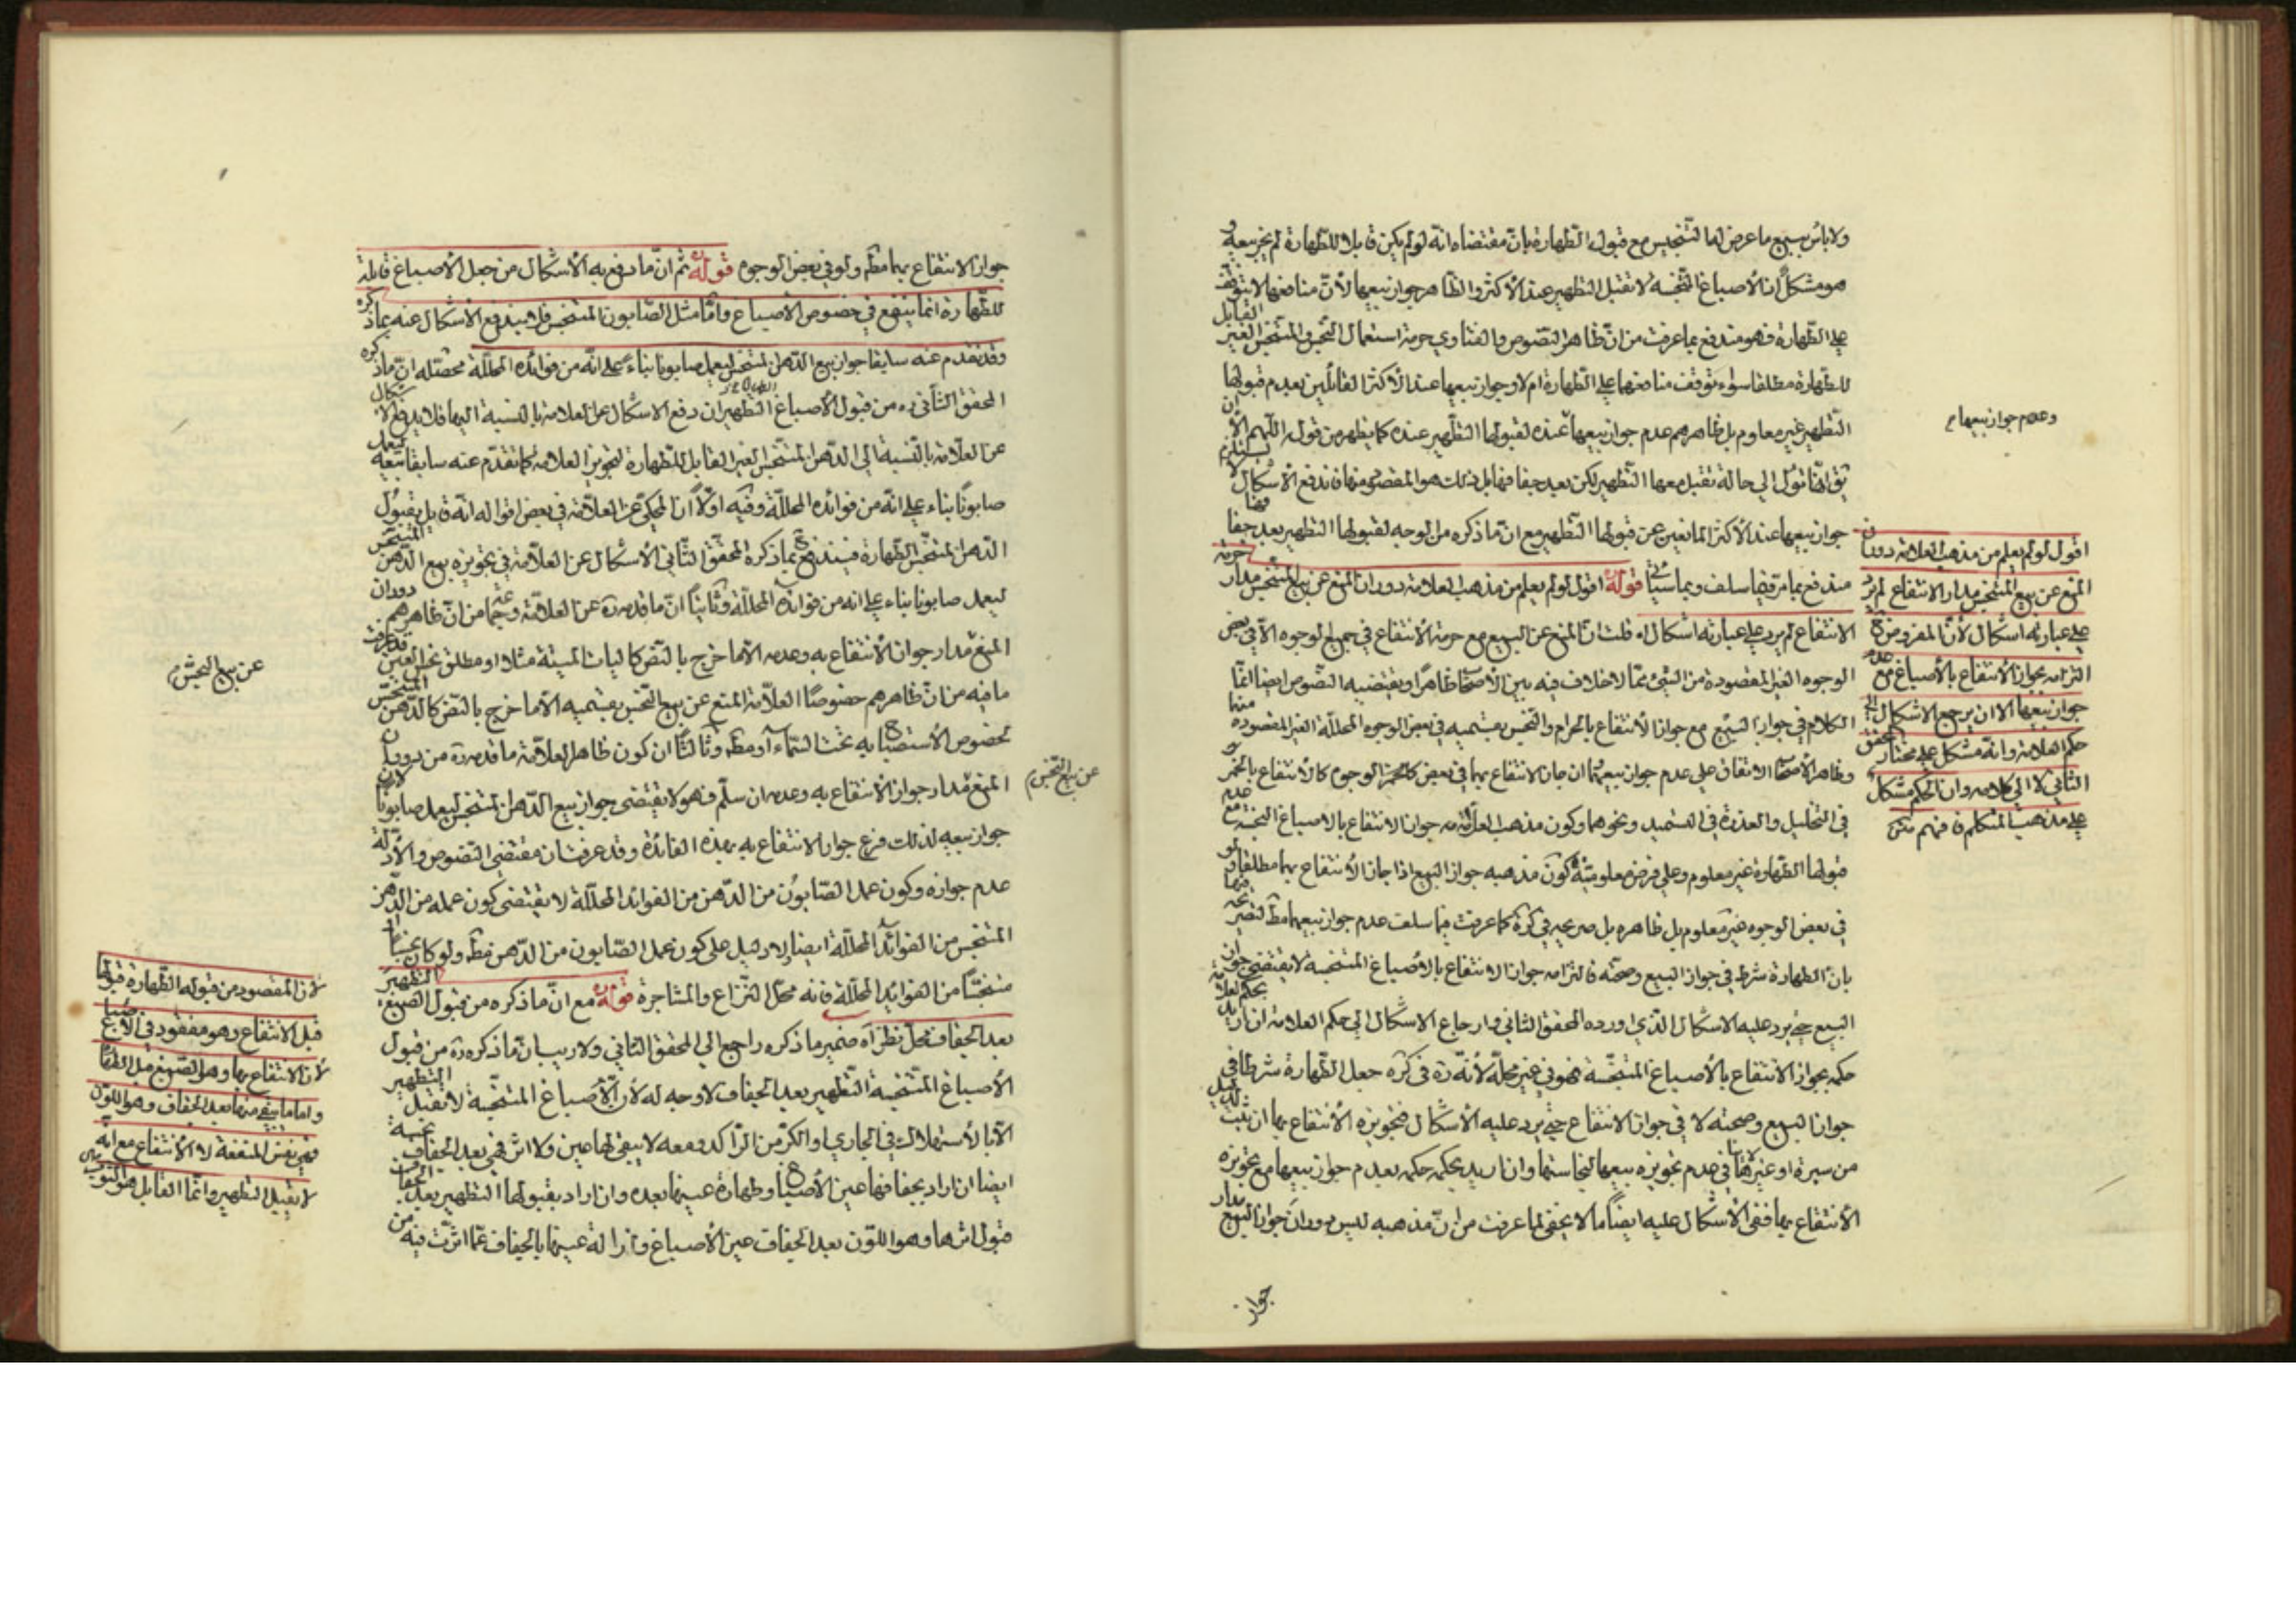 ولا باس ببيع ما عرض لها التنجيس مع قبول الطهارة بان مقتضاه انه لو لم يكن قابلا للطهارة لم يجز بيعه و
هو مشكل ان الاصباغ النجسة لا تقبل التطهير عند الاكثر والظاهر جواز بيعها لان منافعها لا تتوقف
على الطهارة فهو مندفع بما عرفت من ان ظاهر النصوص والفتاوي حرمة استعمال النجس والمتنجس الغير القابل
للطهارة مطلقا سواء توقف منافعها على الطهارة ام لا وجواز بيعها عند الاكثر القائلين بعدم قبولها
التطهير غير معلوم بل ظاهرهم عدم جواز بيعها عنده لقبولها التطهير عنده كما يظهر من قوله اللهم الا ان
تؤل الى حالة تقبل معها التطهير لكن بعد جفافها بل ذلك هو المقصود منها فاندفع الاشكال
جواز بيعها عند الاكثر المانعين عن قبولها التطهير مع ان ما ذكره من الوجه لقبولها التطهير بعد جفافها
مندفع بما مر فيما سلف وبما سياتي قوله ره اقول لو لم يعلم من مذهب العلامة دوران المنع عن بيع المتنجس مدار حرمة
الانتفاع لم يرد على عبارته اشكال اه قلت ان المنع عن البيع مع حرمة الانتفاع في جميع الوجوه الا في بعض
الوجوه الغير المقصودة من الشئ مما لا خلاف فيه بين الاصحاب ظاهرا ويقتضيه النصوص ايضا انما
الكلام في جواز البيع مع جواز الانتفاع بالحرام والنجس بقسميه في بعض الوجوه المحللة الغير المقصودة منها
وظاهر الاصحاب الاتفاق على عدم جواز بيعهما ان جاز الانتفاع بهما في بعض الوجوه كالانتفاع بالخمر
في التخليل والعذرة في التسميد ونحوهما وكون مذهب العلامة جواز الانتفاع بالاصباغ النجسة مع عدم
قبولها الطهارة غير معلوم وعلى فرض معلوميته كون مذهبه جواز البيع اذا جاز الانتفاع بها مطلقا ولو
في بعض الوجوه غير معلوم بل ظاهره بل صريحه في كره كما عرفت فيما سلف عدم جواز بيعها مط لتصريحه فيها
بان الطهارة شرط في جواز البيع وصحته فالتزامه جواز الانتفاع بالاصباغ المتنجسة لا يقتضي جواز
البيع حتى يرد عليه الاشكال الذي اورده المحقق الثاني وارجاع الاشكال الى حكم العلامة ان اريد بحكم العلامة
حكمه بجواز الانتفاع بالاصباغ المتنجسة فهو في غير محله لانه ره في كره جعل الطهارة شرطا في
جواز البيع وصحته لا في جواز الانتفاع حتى يرد عليه الاشكال فتجويزه الانتفاع بها ان ثبت لدليل
من سيرة او غيرها لا ينافي عدم تجويزه بيعها لنجاستها وان اريد بحكمه حكمه بعدم جواز بيعها مع تجويزه
الانتفاع بها ففي الاشكال عليه ايضا ما لا يخفى لما عرفت من ان مذهبه ليس دوران جواز البيع مدار
جواز
وعدم جواز بيعها م
اقول لو لم يعلم من مذهب العلامة دوران
المنع عن بيع المتنجس مدار الانتفاع لم يرد
على عبارته اشكال لان المفروض ح
التزامه بجواز الانتفاع بالاصباغ مع عدم
جواز بيعها الا ان يرجع الاشكال الى
حكم العلامة وانه مشكل على مختار المحقق
الثاني لا الى كلامه وان الحكم مشكل
على مذهب المتكلم فافهم متن
جواز الانتفاع بها مط ولو في بعض الوجوه قوله ره ثم ان ما دفع به الاشكال من جعل الاصباغ قابلة
للطهارة انما ينفع في خصوص الاصباغ واما مثل الصابون المتنجس فلا يندفع الاشكال عنه بما ذكره
وقد تقدم عنه سابقا جواز بيع الدهن المتنجس ليعمل صابونا بناء على انه من فوائده المحللة محصله ان ما ذكره
المحقق الثاني ره من قبول الاصباغ التطهير ان دفع الاشكال عن العلامة بالنسبة اليها فلا يدفع الاشكال
عن العلامة بالنسبة الى الدهن المتنجس الغير القابل للطهارة لتجويز العلامة كما تقدم عنه سابقا بيعه ليعمل
صابونا بناء على انه من فوائده المحللة وفيه اولا ان المحكي عن العلامة في بعض اقواله انه قايل بقبول
الدهن المتنجس الطهارة فيندفع بما ذكره المحقق الثاني الاشكال عن العلامة في تجويزه بيع الدهن المتنجس
ليعمل صابونا بناء على انه من فوائده المحللة وثانيا ان ما قدمه ره عن العلامة وغيره من ان ظاهرهم دوران
المنع مدار جواز الانتفاع به وعدمه الا ما خرج بالنص كاليات الميتة مثلا او مطلق نجس العين قد عرفت
ما فيه من ان ظاهرهم خصوصا العلامة المنع عن بيع النجس بقسميه الا ما خرج بالنص كالدهن المتنجس
لخصوص الاستصباح به تحت السماء او مط وثالثا ان كون ظاهر العلامة ما قدمه ره من دوران
المنع مدار جواز الانتفاع به وعدمه ان سلم فهو لا يقتضي جواز بيع الدهن المتنجس ليعمل صابونا لان
جواز بيعه لذلك فرع جواز الانتفاع به بهذه الفائدة وقد عرفت ان مقتضى النصوص والادلة
عدم جوازه وكون عمل الصابون من الدهن من الفوائد المحللة لا يقتضي كون عمله من الدهن
المتنجس من الفوائد المحللة ايضا ولا دليل على كون عمل الصابون من الدهن مط ولو كان نجسا او
متنجسا من الفوائد المحللة فانه محل النزاع والمشاجرة قوله ره مع ان ما ذكره من قبول الصبغ التطهير
بعد الجفاف محل نظر اه ضمير ما ذكره راجع الى المحقق الثاني ولا ريب ان ما ذكره ره من قبول
الاصباغ المتنجسة التطهير بعد الجفاف لا وجه له لان الاصباغ المتنجسة لا تقبل التطهير
الا بالاستهلاك في الجاري او الكر من الراكد ومعه لا يبقى لها عين ولا اثر فهي بعد الجفاف نجسة
ايضا ان اراد بجفافها عين الاصباغ وطهارة عينها بعده وان اراد بقبولها التطهير بعد الجفاف
قبول اثرها وهو اللون بعد الجفاف عين الاصباغ وازالة عينها بالجفاف عما اثرت فيه من
عن بيع النجس م
عن بيع النجس م
لان المقصود من قبوله الطهارة قبولها
قبل الانتفاع وهو مفقود في الاصباغ
لان الانتفاع بها وهو الصبغ قبل الطهارة
واما ما يبقى منها بعد الجفاف وهو اللون
فهي نفس المنفعة لا الانتفاع مع انه
لا يقبل التطهير وانما القابل هو الثوب متن